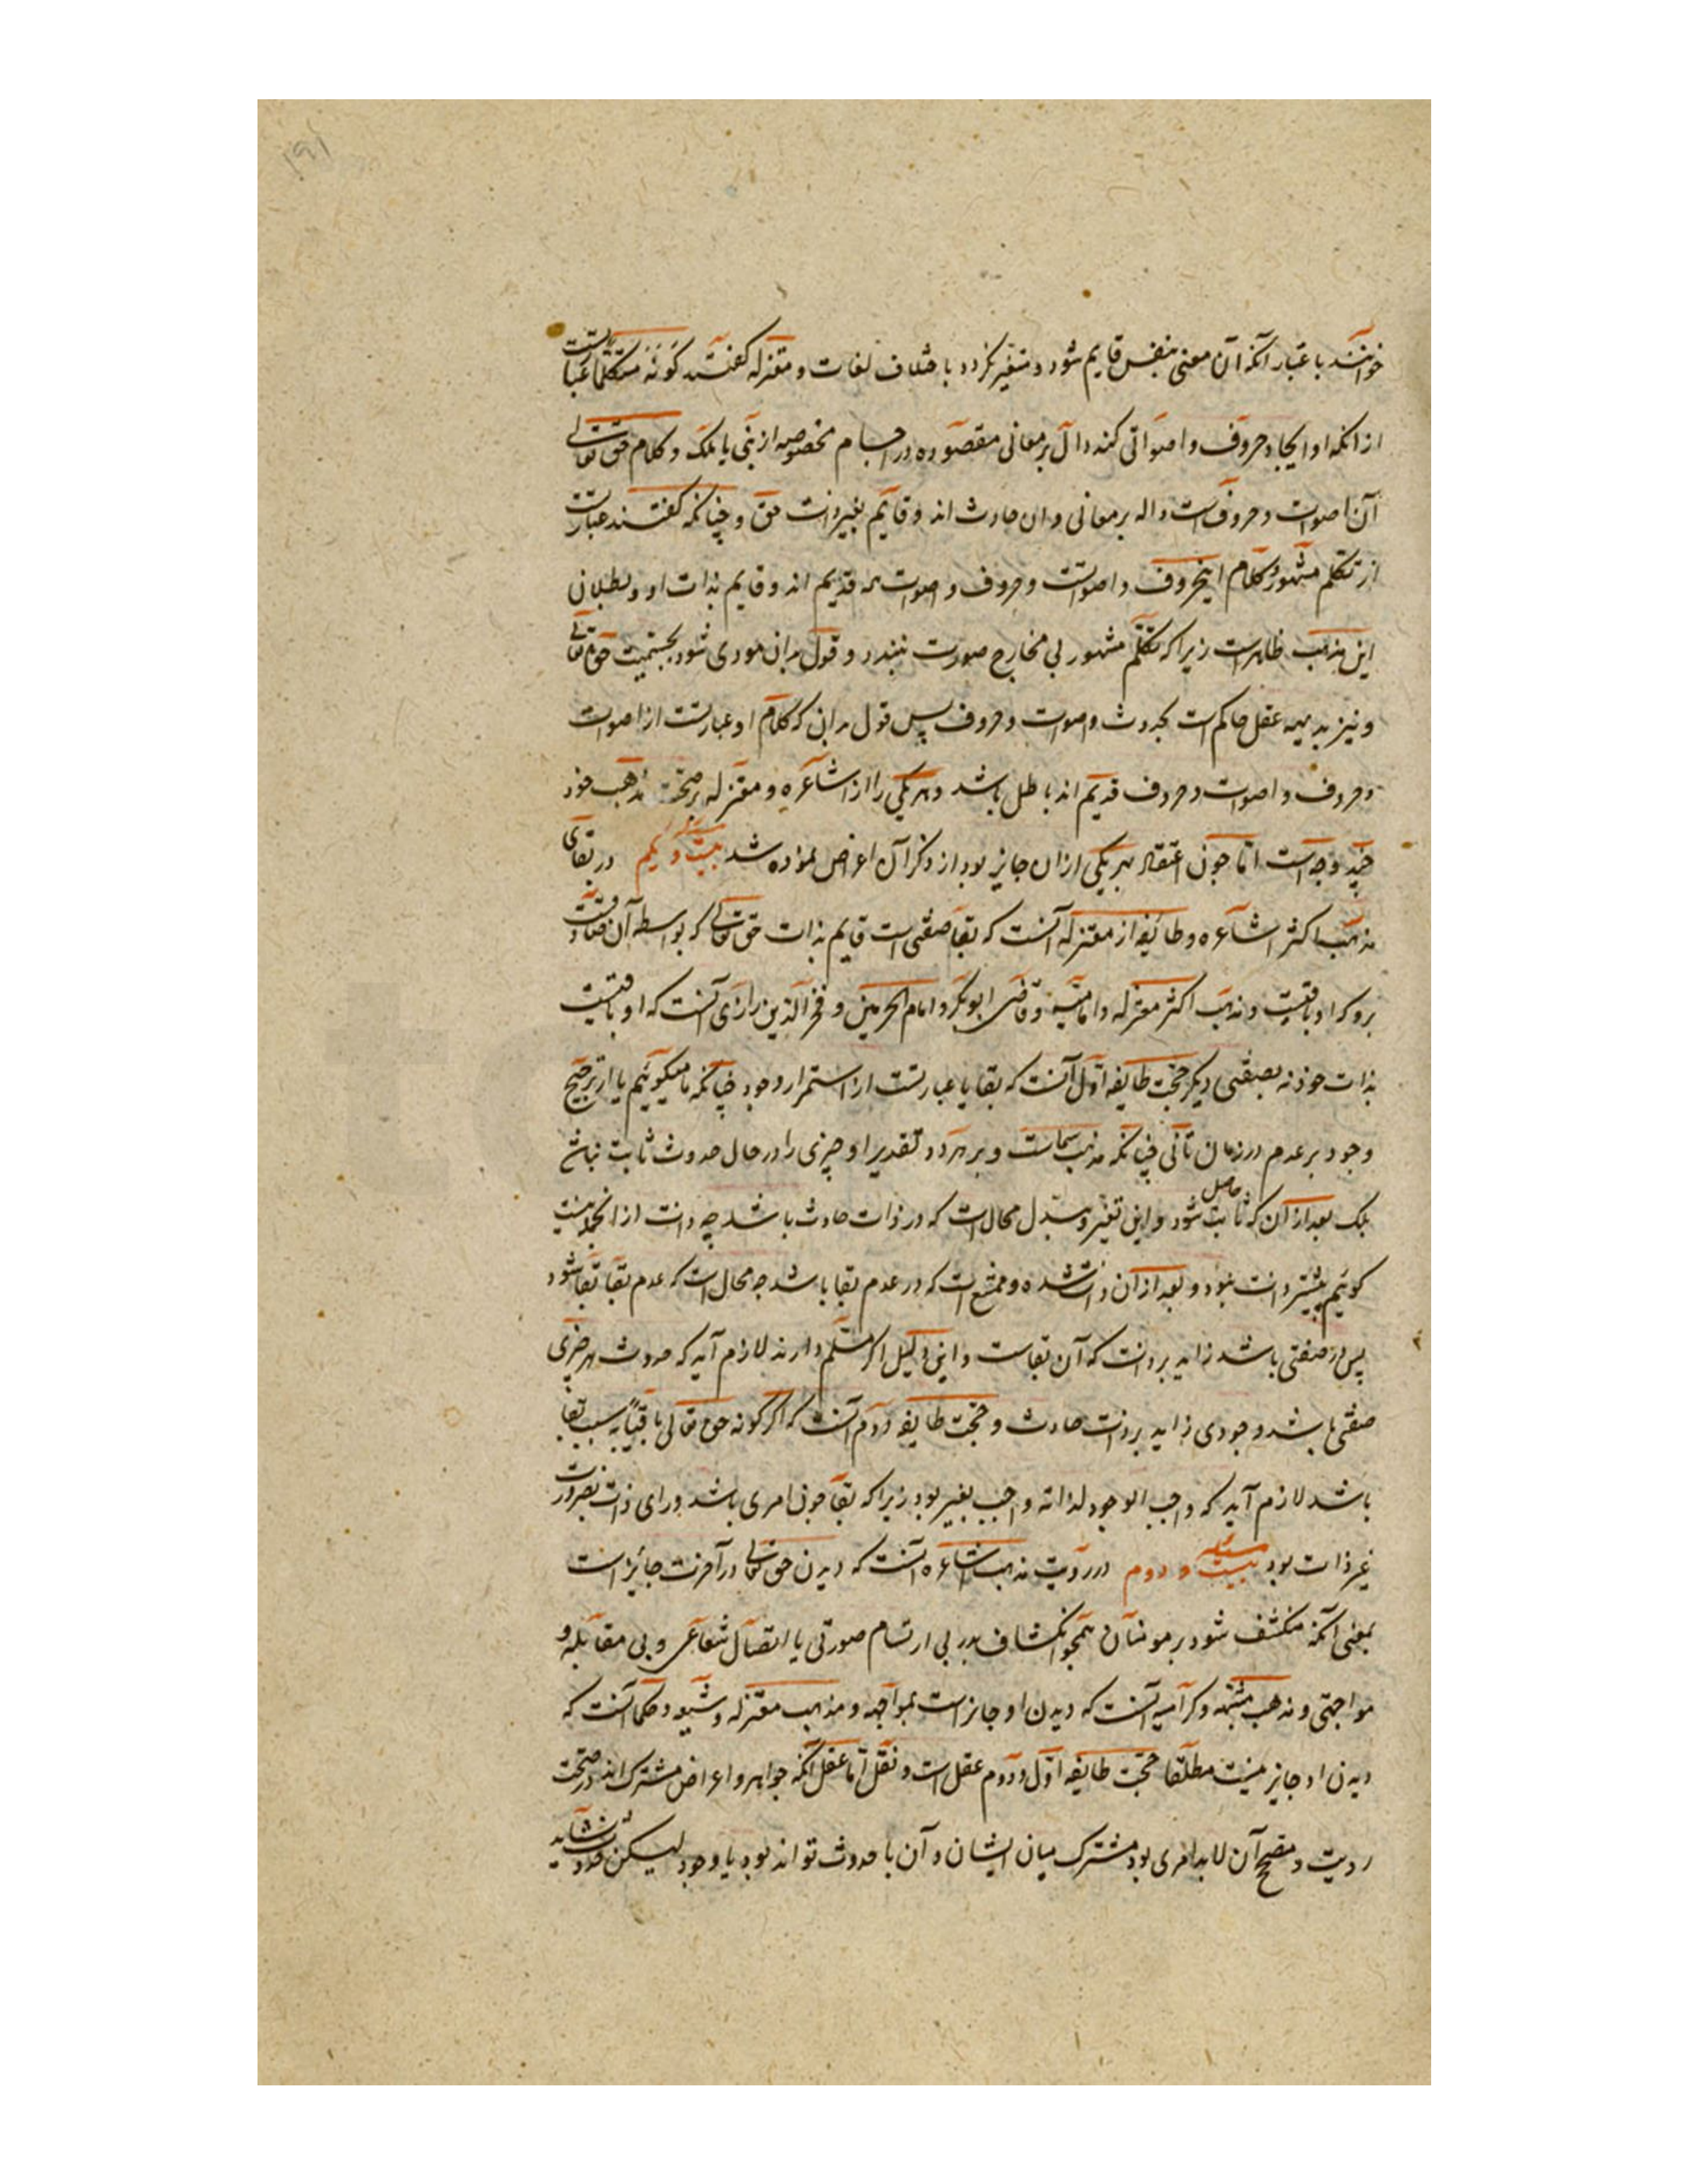 ۱۹۱
خوانند باعتبار آنکه آن معنی بنفس قایم شود و متغیر نکردد باختلاف لغات و معتزله کفتند کونه متکلما عبارتست
از انکه او ایجاد حروف و اصواتی کند دال بر معانی مقصوده در اجسام مخصوصه از نبی یا ملک و کلام حق تعالی
آن اصوات و حروفست داله بر معانی و ان حادث اند و قایم بغیر ذات حق و چنانکه کفتند عبارتست
از تکلم مشهور و کلام اینحروف و اصواتست و حروف و اصوات قدیم اند و قایم بذات او و بطلان
این مذهب ظاهرست زیرا که تکلم مشهور بی مخارج صورت نبندد و قول بدان مودی شود بجسمیت حق تعالی
و نیز بدیهه عقل حاکمست بحدوث اصوات و حروف پس قول بدانی که کلام او عبارتست از اصوات
و حروف و اصوات و حروف قدیم اند باطل باشد و هر یکی را از اشاعره و معتزله بر صحت مذهب خود
چند وجهست اما چون اعتقاد بهر یکی ازان جایز بود از ذکر آن اعراض نموده شد مسئله بیست و یکم در بقای
مذهب اکثر اشاعره و طائفه از معتزله آنست که بقا صفتی است قایم بذات حق تعالی که بواسطه آن صفت
برو که او باقیست و مذهب اکثر معتزله و امامیه و قاضی ابوبکر و امام الحرمین و فخر الدین رازی آنست که او باقیست
بذات خود نه بصفتی دیکر حجت طایفه اول آنست که بقا یا عبارتست از استمرار وجود چنانکه ما میکوئیم یا از ترجیح
وجود بر عدم در زمان ثانی چنانکه مذهب شماست و بر هر دو تقدیر او چیزی را در حال حدوث ثابت نباشد
بلک بعد از آن که ثابت حاصل شود و این تغیر و تبدل محال است که در ذات حادث باشد چه ذات از انجمله نیست
کوئیم پیشتر ذات نبود و بعد از آن ذات شده و ممتنع است که در عدم بقا باشد چه محال است که عدم بقا بقا شود
پس در صفتی باشد زاید بر ذات که آن بقاست و این دلیل اکر مسلم دارند لازم آید که حدوث هر چیزی
صفتی باشد وجودی زاید بر ذات حادث و حجت طایفه دوم آنست که اکر کونه حق تعالی باقیا به سبب بقا
باشد لازم آید که واجب الوجود لذاته واجب بغیر بود زیرا که بقا چون امری باشد ورای ذات بضرورت
غیر ذات بود مسئله بیست و دوم در رویت مذهب اشاعره آنست که دیدن حق تعالی در آخرت جائز است
بمعنی آنکه منکشف شود بر مومنان همچو انکشاف بدر بی ارتسام صورتی یا اتصال شعاعی و بی مقابله و
مواجهتی و مذهب مشبهه و کرامیه آنست که دیدن او جایزاست بمواجهه و مذهب معتزله و شیعه و حکما آنست که
دیدن او جایز نیست مطلقا حجت طایفه اول و دوم عقل است و نقل اما عقل آنکه جواهر و اعراض مشترک اند در صحت
رویت و مصحح آن لابد امری بود مشترک میان ایشان و آن با حدوث تواند بود یا وجود لیکن حدوث نشاید